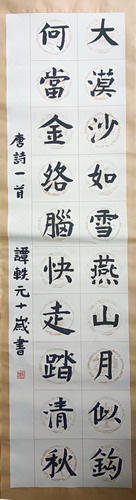 大漠沙如雪燕山月似鈎
何當金絡腦快走踏清秋
唐詩一首
譚軼元十歲書